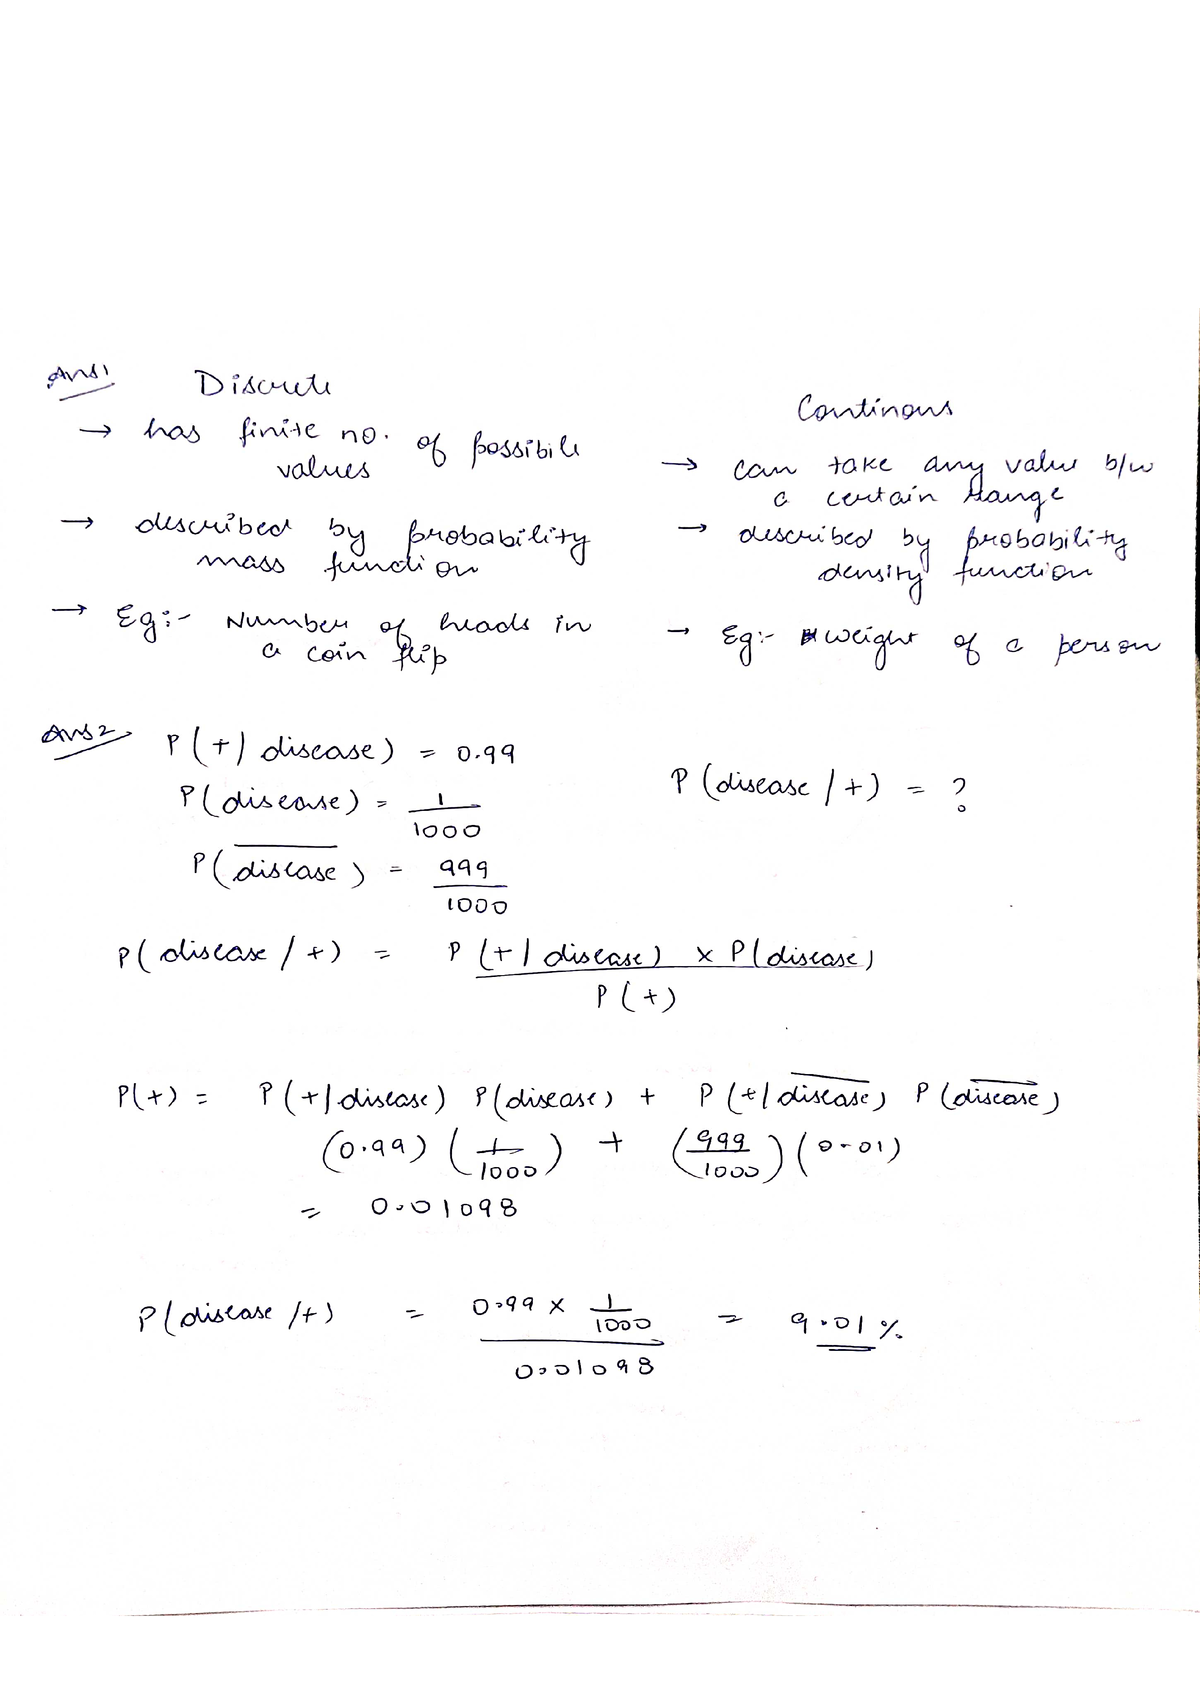 Ans1 Discrete
→ has finite no. of possibile
values
→ described by probability
mass function
→ Eg:- Number of heads in
a coin flip
Continous
→ can take any value b/w
a certain range
→ described by probability
density function
→ Eg:- weight of a person
Ans2 P(+| disease) = 0.99
P(disease) = 1/1000
P(disease̅) = 999/1000
P(disease/+) = ?
P(disease/+) = P(+| disease) × P(disease) / P(+)
P(+) = P(+|disease) P(disease) + P(+| disease̅) P(disease̅)
(0.99) (1/1000) + (999/1000) (0.01)
= 0.01098
P(disease/+) = 0.99 × 1/1000 / 0.01098 = 9.01%